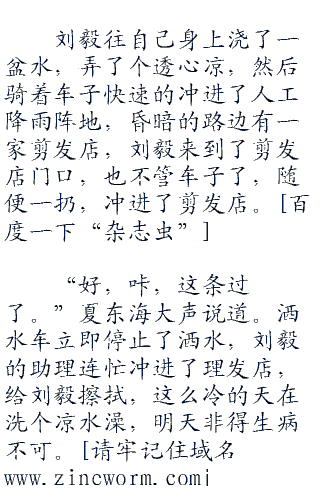 刘毅往自己身上浇了一
盆水，弄了个透心凉，然后
骑着车子快速的冲进了人工
降雨阵地，昏暗的路边有一
家剪发店，刘毅来到了剪发
店门口，也不管车子了，随
便一扔，冲进了剪发店。[百
度一下“杂志虫”]
“好，咔，这条过
了。”夏东海大声说道。洒
水车立即停止了洒水，刘毅
的助理连忙冲进了理发店，
给刘毅擦拭，这么冷的天在
洗个凉水澡，明天非得生病
不可。[请牢记住域名
www.zincworm.com]